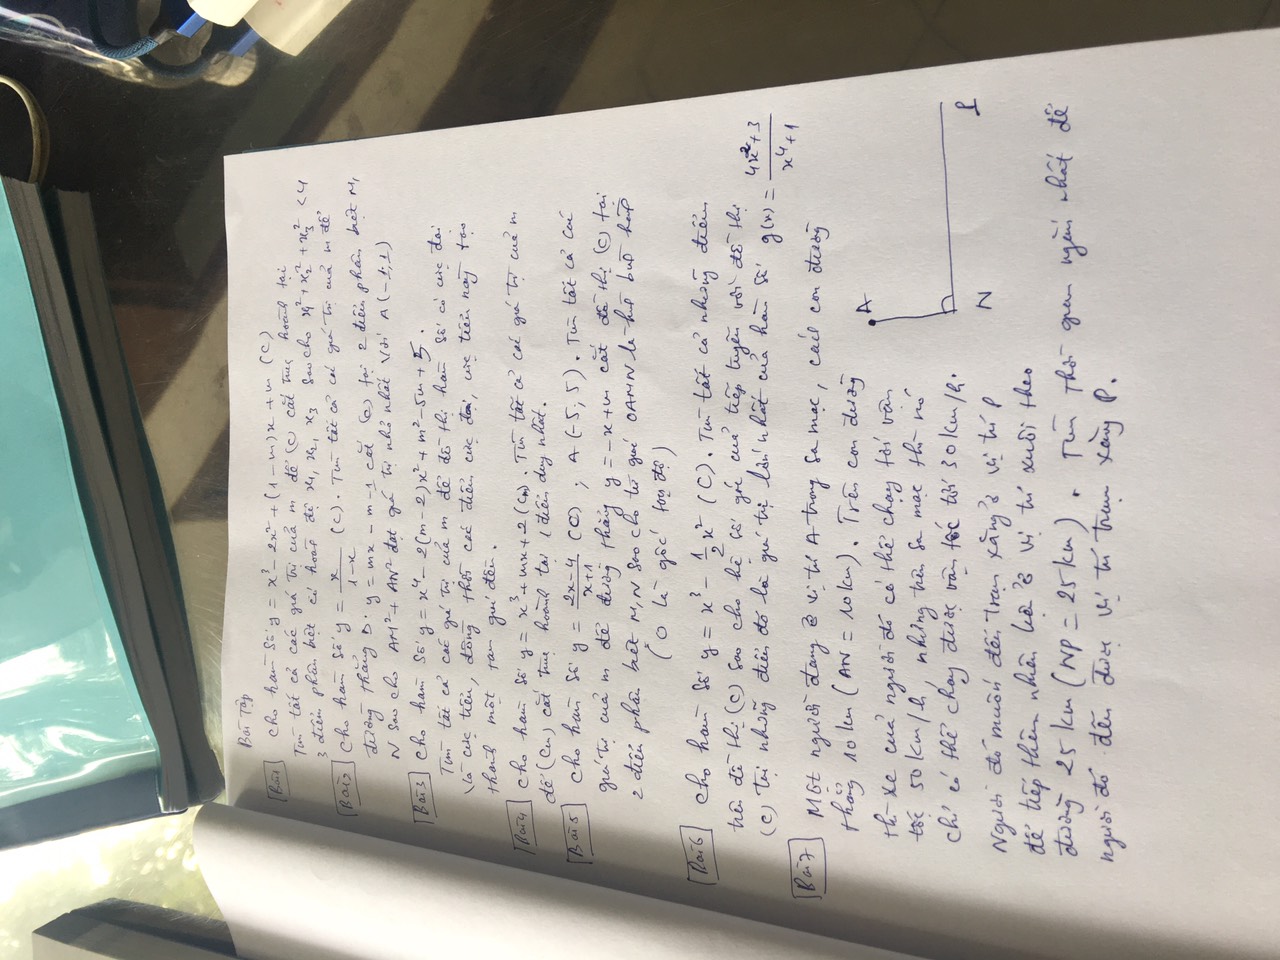 Bài Tập
Bài 1 Cho hàm số y = x³ - 2x² + (1-m)x + m (C)
Tìm tất cả các giá trị của m để (C) cắt trục hoành tại
3 điểm phân biệt có hoành độ x₁, x₂, x₃ sao cho x₁² + x₂² + x₃² < 4
Bài 2 Cho hàm số y = x/(1-x) (C). Tìm tất cả các giá trị của m để
đường thẳng D: y = mx - m - 1 cắt (C) tại 2 điểm phân biệt M,
N sao cho AM² + AN² đạt giá trị nhỏ nhất với A(-1;1)
Bài 3 Cho hàm số y = x⁴ - 2(m-2)x² + m² - 5m + 5.
Tìm tất cả các giá trị của m để đồ thị hàm số có cực đại
và cực tiểu, đồng thời các điểm cực đại, cực tiểu này tạo
thành một tam giác đều.
Bài 4 Cho hàm số y = x³ + mx + 2 (Cm). Tìm tất cả các giá trị của m
để (Cm) cắt trục hoành tại 1 điểm duy nhất.
Bài 5 Cho hàm số y = (2x-4)/(x+1) (C); A(-5;5). Tìm tất cả các
giá trị của m để đường thẳng y = -x + m cắt đồ thị (C) tại
2 điểm phân biệt M, N sao cho tứ giác OAMN là hình bình hành
(O là gốc toạ độ)
Bài 6 Cho hàm số y = x³ - 1/2x² (C). Tìm tất cả những điểm
trên đồ thị (C) sao cho hệ số góc của tiếp tuyến với đồ thị
(C) tại những điểm đó là giá trị lớn nhất của hàm số g(x) = (4x²+3)/(x⁴+1)
Bài 7 Một người đang ở vị trí A trong sa mạc, cách con đường
thẳng 10 km (AN = 10 km). Trên con đường
thì xe của người đó có thể chạy tới vận
tốc 50 km/h, nhưng trên sa mạc thì nó
chỉ có thể chạy được vận tốc tới 30 km/h.
Người đó muốn đến trạm xăng ở vị trí P
để tiếp thêm nhiên liệu ở vị trí xuôi theo
đường 25 km (NP = 25 km). Tìm thời gian ngắn nhất để
người đó đến được vị trí trạm xăng P.
A
N
P